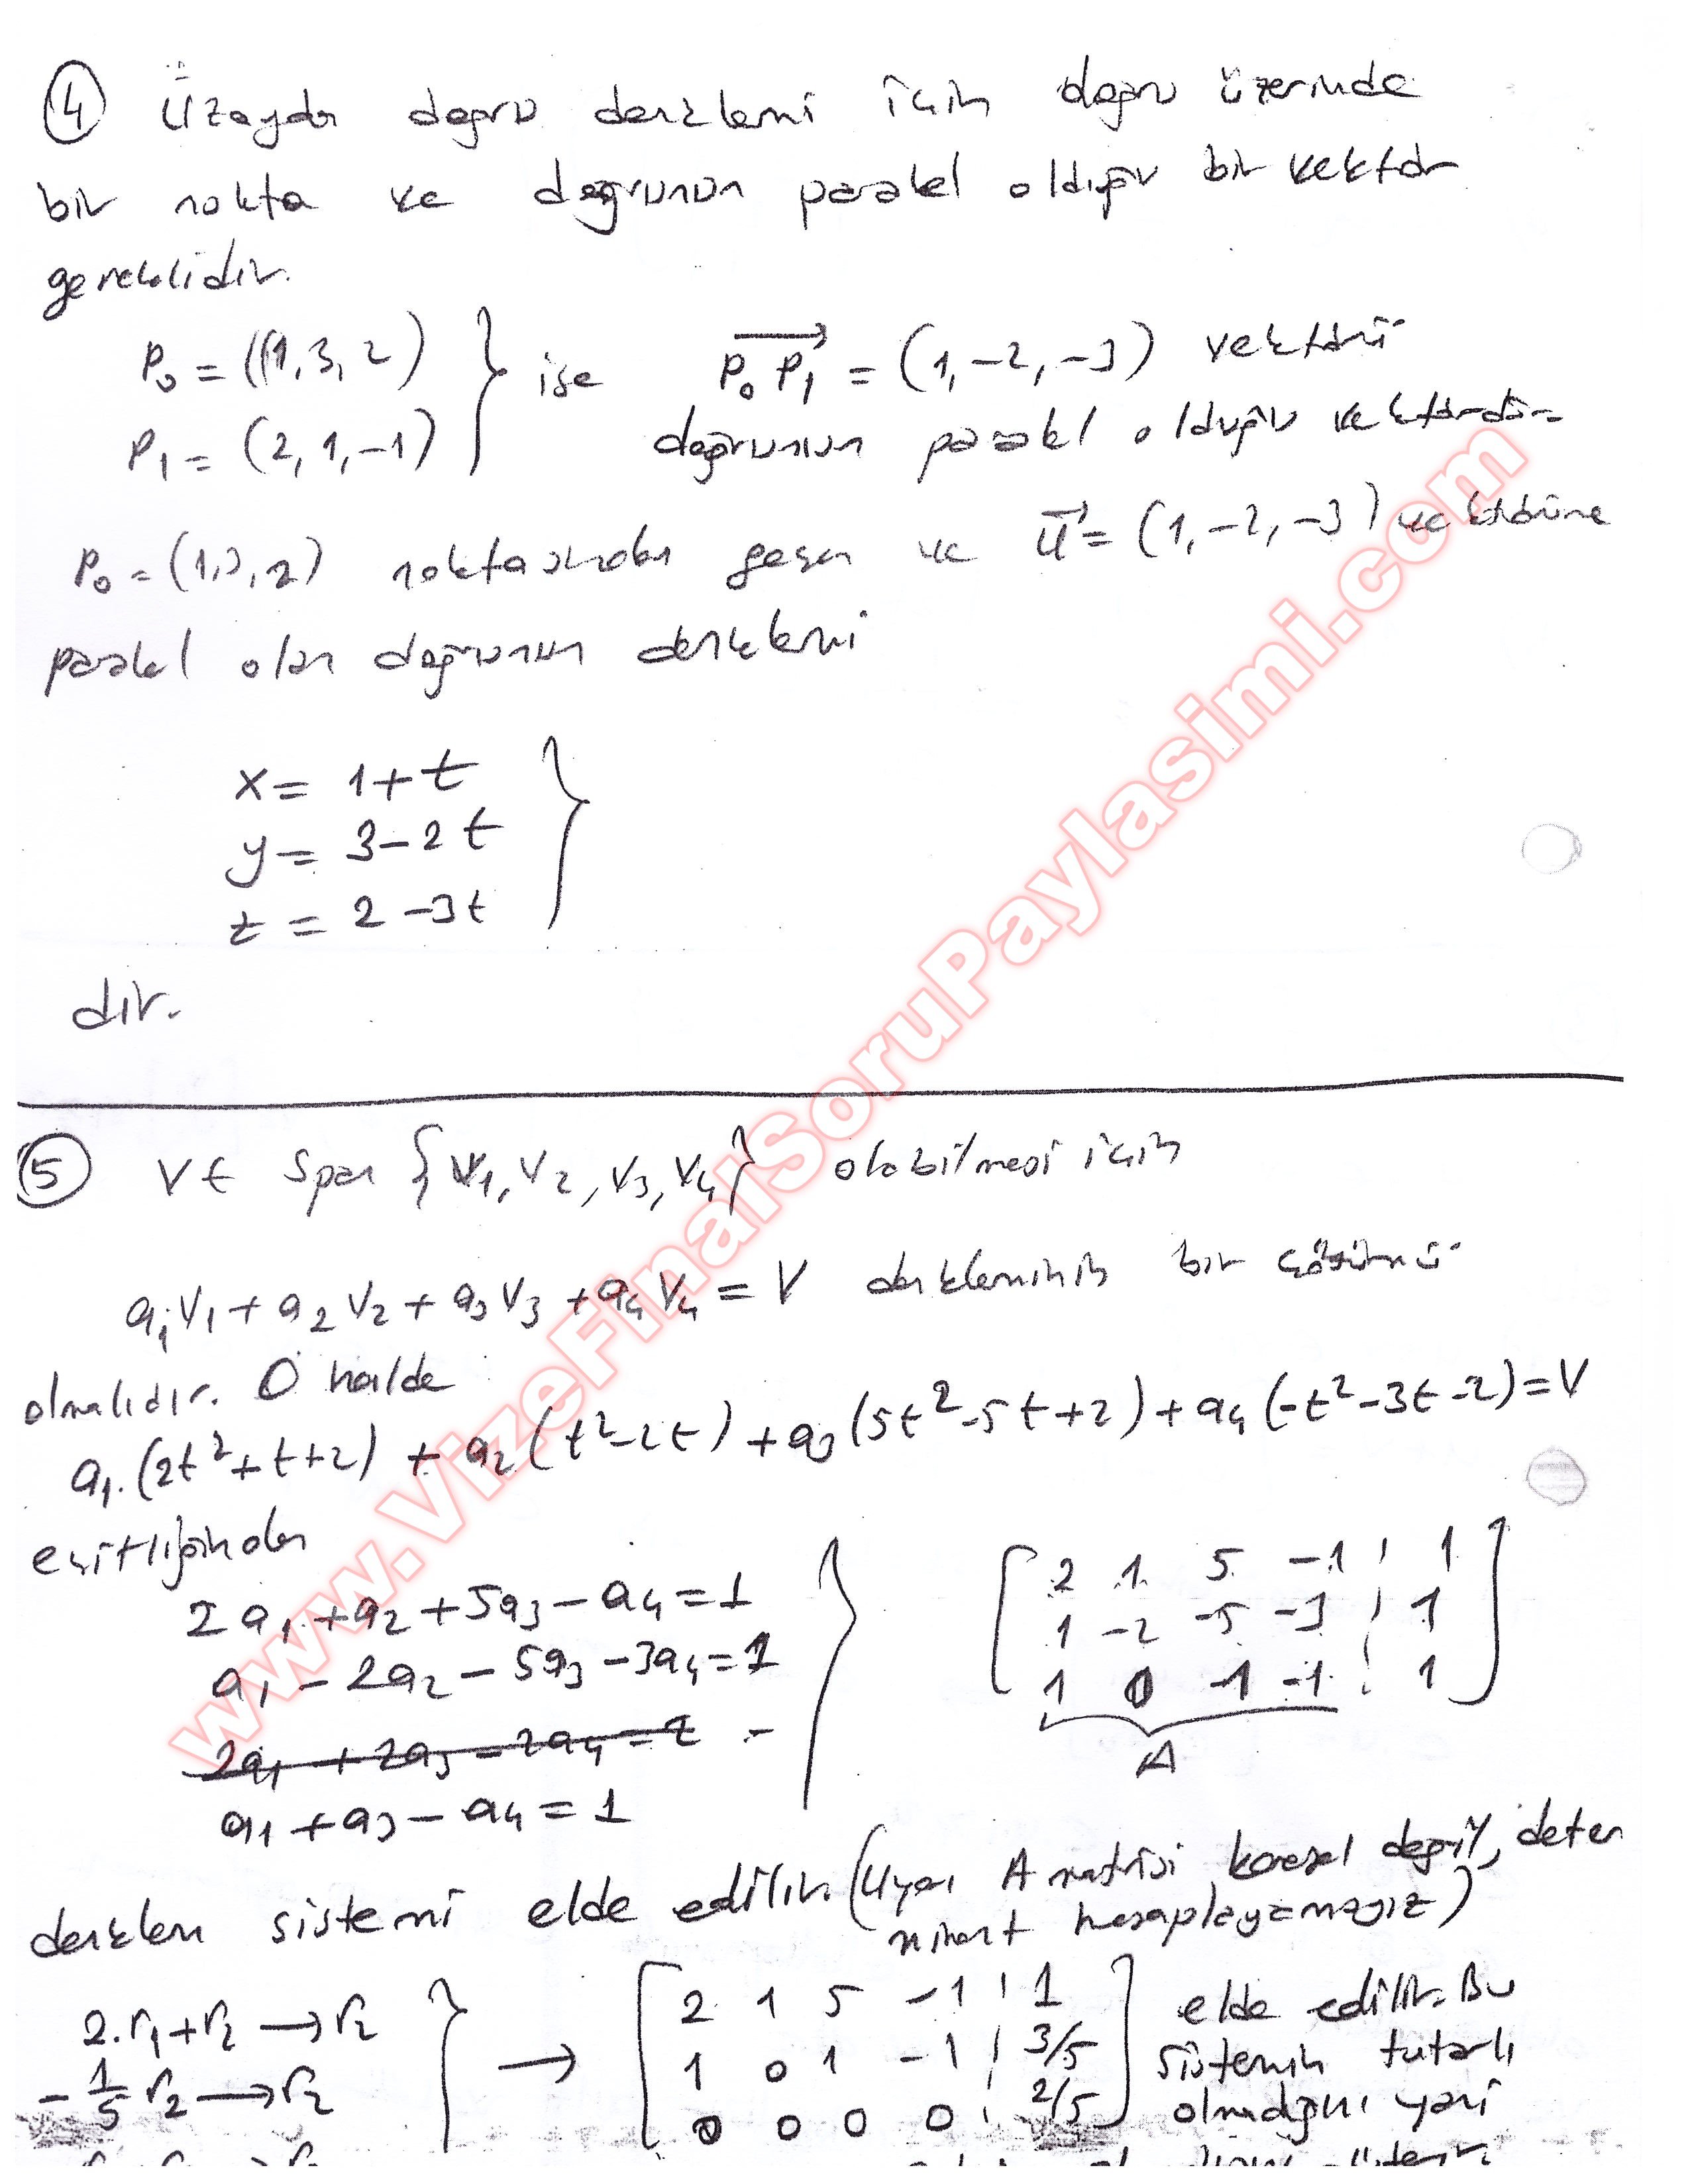 ④ Uzayda doğru denklemi için doğru üzerinde
bir nokta ve doğrunun paralel olduğu bir vektör
gereklidir.
P₀ = (1, 3, 2)
P₁ = (2, 1, -1)
ise P₀P₁ = (1, -2, -3) vektörü
doğrunun paralel olduğu vektördür.
P₀ = (1,3,2) noktasından geçen ve u = (1, -2, -3) vektörüne
paralel olan doğrunun denklemi
x = 1+t
y = 3-2t
z = 2-3t
dir.
⑤ V ∈ Span {V₁, V₂, V₃, V₄} olabilmesi için
a₁V₁ + a₂V₂ + a₃V₃ + a₄V₄ = V denkleminin bir çözümü
olmalıdır. O halde
a₁.(2t²+t+2) + a₂(t²-2t) + a₃(5t²-5t+2) + a₄(-t²-3t-2) = V
eşitliğinden
2a₁ + a₂ + 5a₃ - a₄ = 1
a₁ - 2a₂ - 5a₃ - 3a₄ = 1
2a₁ + 2a₃ - 2a₄ = 2
a₁ + a₃ - a₄ = 1
2 1 5 -1 | 1
1 -2 -5 -3 | 1
1 0 -1 -1 | 1
A
denklem sistemi elde edilir. (Uyarı A matrisi karesel değil, deter
minant hesaplayamayız)
2.r₁+r₂ → r₂
-1/5 r₂ → r₂
→
2 1 5 -1 | 1
1 0 1 -1 | 3/5
0 0 0 0 | 2/5
elde edilir. Bu
sistemin tutarlı
olmadığını yani
www.VizeFinalSoruPaylasimi.com